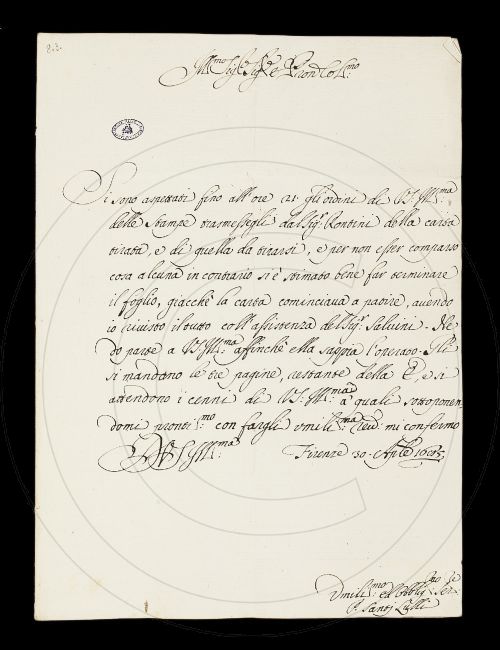 Ill:mo Sig:re Sig:re e Pron Col:mo
Si sono aspettati fino all'ore 21. gli ordini di VS. Ill:ma
delle Stampe trasmessegli dal Sig:r Rontini della carta
tirata, e di quella da tirarsi, e per non esser comparso
cosa alcuna in contrario si è stimato bene far terminare
il foglio, giacchè la carta cominciava a patire, avendo
io rivisto il tutto coll'assistenza del Sig:r Salvini. Ne
do parte a VS. Ill:ma affinchè ella sappia l'operato. Gli
si mandano le tre pagine, restante della E, e si
attendono i cenni di VS: Ill:ma a quali sottoponen
domi pronti:mo con fargli umili:ma reu: mi confermo
D VS Ill:ma Firenze 30. Aple
Umili:mo ed Obblig:mo Se Ser: